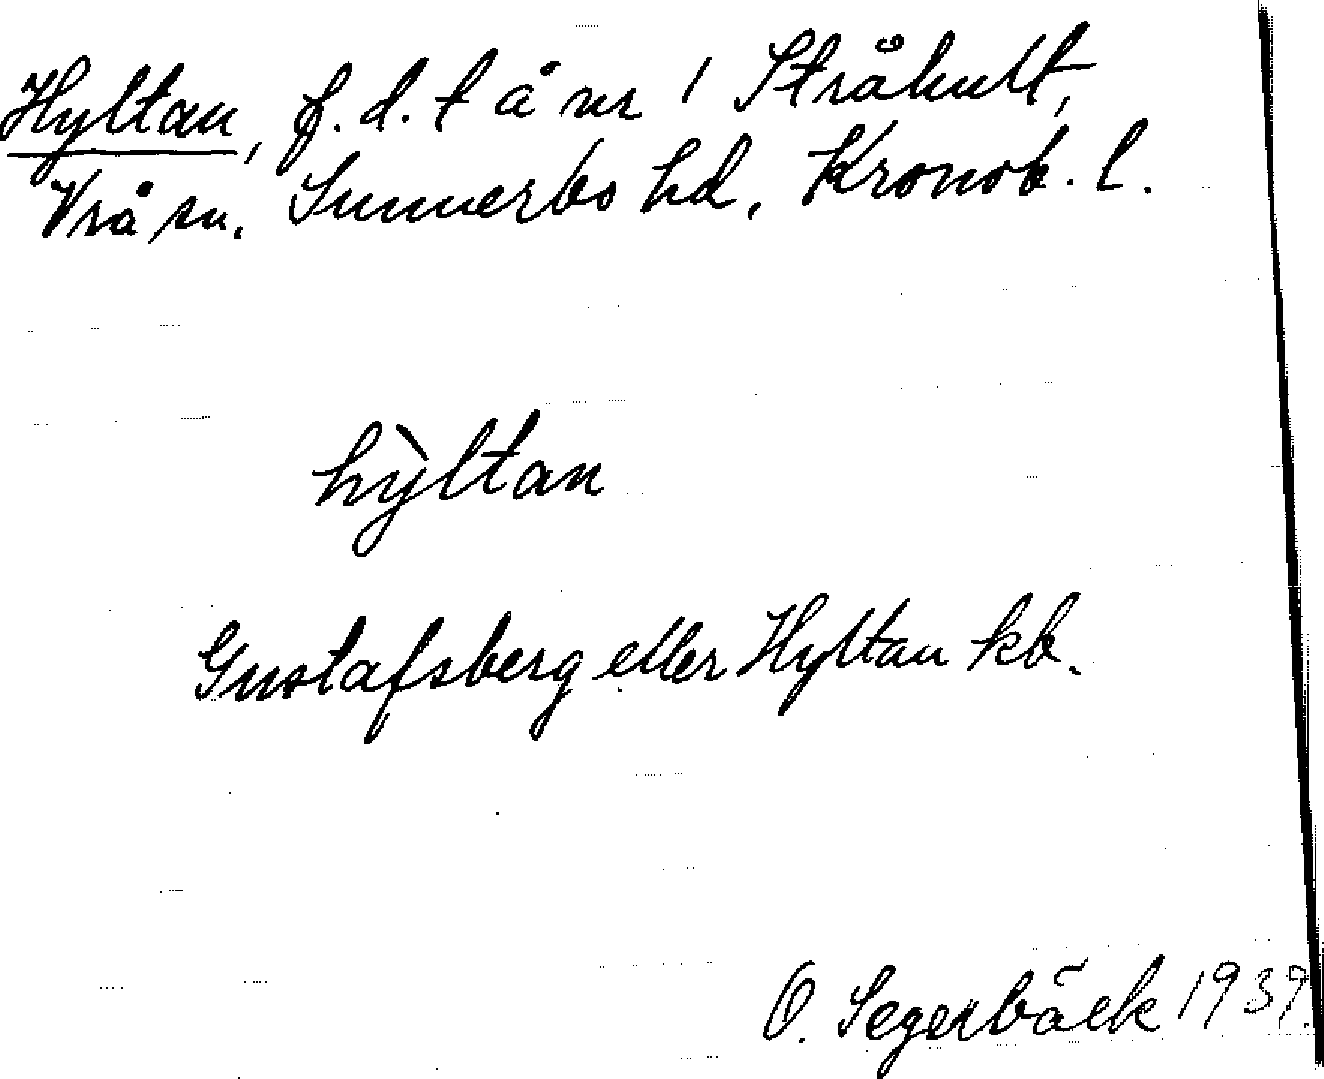 Hyltan, f. d. t å nr 1 Stråhult,
Vrå sn. Sunnerbo hd, Kronob. l.
hỳltan
Gustafsberg eller Hyltan kb.
O. Segerbäck 1939.